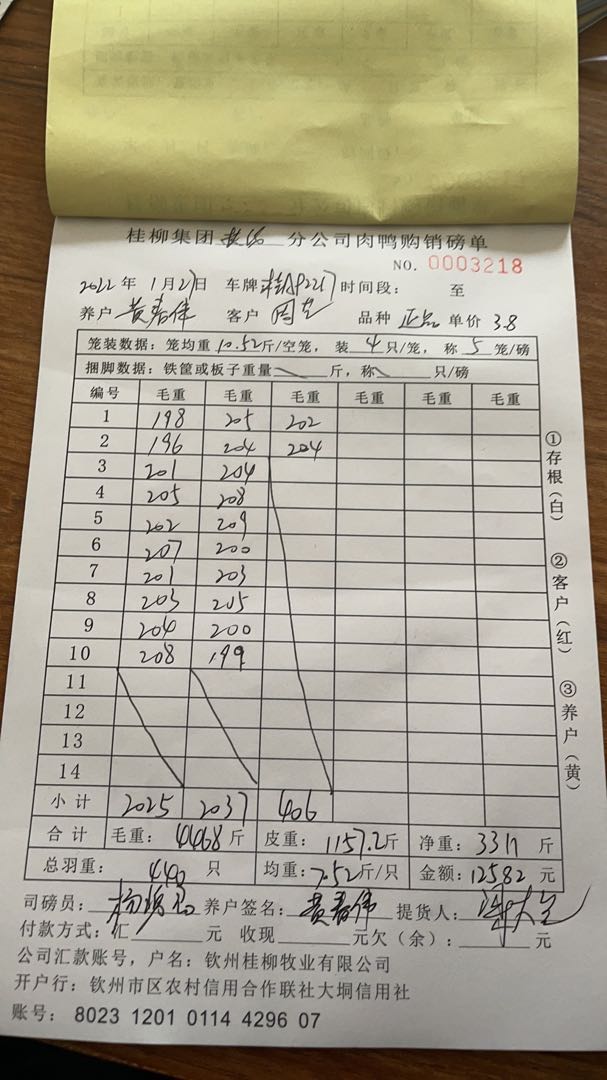 桂柳集团 分公司肉鸭购销磅单
NO. 0003218
2022年 1月27日 车牌 桂AP2217 时间段： 至
养户 黄春伟 客户 周 品种 正品 单价 3.8
笼装数据：笼均重 10.52斤/空笼，装 4 只/笼，称 5 笼/磅
捆脚数据：铁筐或板子重量 斤，称 只/磅
编号 毛重 毛重 毛重 毛重 毛重 毛重
1 198 205 202
2 196 204 204
3 201 204
4 205 208
5 202 209
6 207 200
7 201 203
8 203 205
9 204 200
10 208 199
11
12
13
14
小计 2025 2037 406
合计 毛重：4468斤 皮重：1157.2斤 净重：3311 斤
总羽重： 440 只 均重：7.52斤/只 金额：12582 元
司磅员： 杨 养户签名： 黄春伟 提货人：
付款方式：汇 元 收现 元欠（余）： 元
公司汇款账号，户名：钦州桂柳牧业有限公司
开户行：钦州市区农村信用合作联社大垌信用社
账号：8023 1201 0114 4296 07
①存根（白）
②客户（红）
③养户（黄）